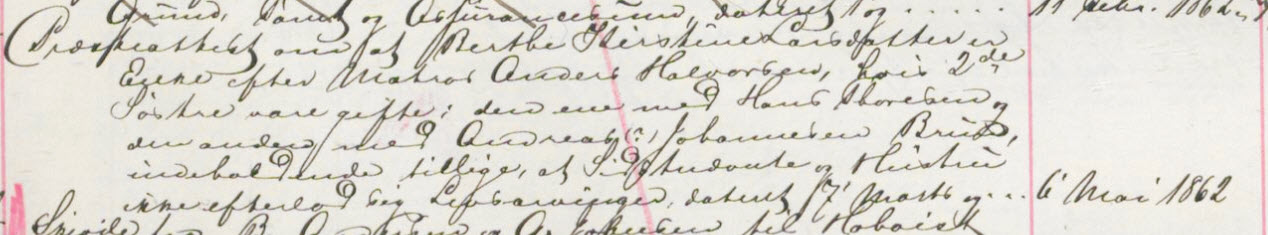 Grund, Tomt og Assurancesum, dateret og ..... 11 Febr. 1862
Præsteattest om at Berthe Kirstine Larsdatter er
Enke efter Matros Anders Halvorsen, hvis 2de
Søstre vare gifte; den ene med Hans Thoresen og
den anden med Andreas (?) Johannesen Bruu,
indeholdende tillige, at Sidstnævnte og Hustru
ikke efterlod sig Livsarvinger, dateret 17 Marts og ... 6 Mai 1862
Skjøde fra B. og A. til Hoboist